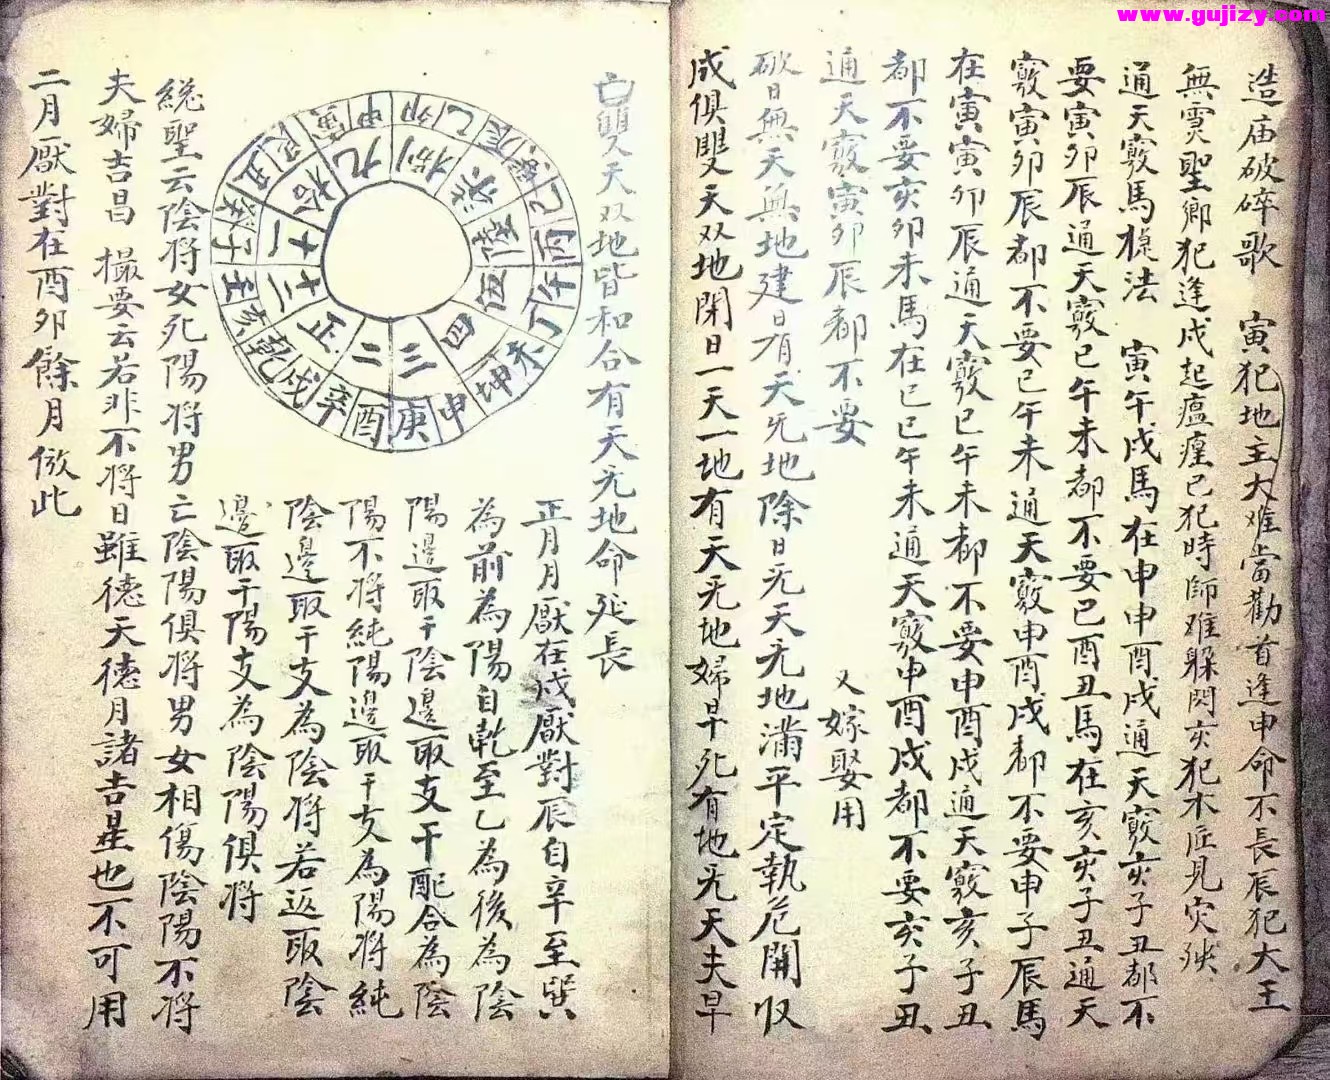 www.gujizy.com
造庙破碎歌　寅犯地主大难當勸首逢申命不長辰犯大王
無灵聖鄉犯逢戍起瘟瘟已犯時師难躲閃亥犯木匠見灾殃
通天竅馬㨿法　寅午戍馬在申申酉戍通天竅亥子丑都不
要寅卯辰通天竅已午未都不要巳酉丑馬在亥亥子丑通天
竅寅卯辰都不要已午未通天竅申酉戍都不要申子辰馬
在寅寅卯辰通天竅巳午未都不要申酉戍通天竅亥子丑
都不要亥卯未馬在已已午未通天竅申酉戍都不要亥子丑
通天竅寅卯辰都不要
又嫁娶用
破日無天無地建日有天无地除日无天无地滿平定執危開収
成俱雙天双地閉日一天一地有天无地婦早死有地无天夫早
亡雙天双地皆和合有天无地命延長
正月月厭在戍厭對辰自辛至巽
為前為陽自乾至乙為後為陰
陽邊取干陰邊取支干配合為陰
陽不將純陽邊取干支為陽將純
陰邊取干支為陰將若返取陰
邊取干陽支為陰陽俱將
総聖云陰将女死陽将男亡陰陽俱将男女相傷陰陽不将
夫婦吉昌　撮要云若非不将日雖德天德月諸吉星也不可用
二月厭對在酉卯餘月倣此
正
二
三
四
伍
陸
柒
捌
九
拾
十一
十二
戍
辛
酉
庚
申
坤
未
丁
午
丙
巳
巽
辰
乙
卯
甲
寅
艮
丑
癸
子
壬
亥
乾